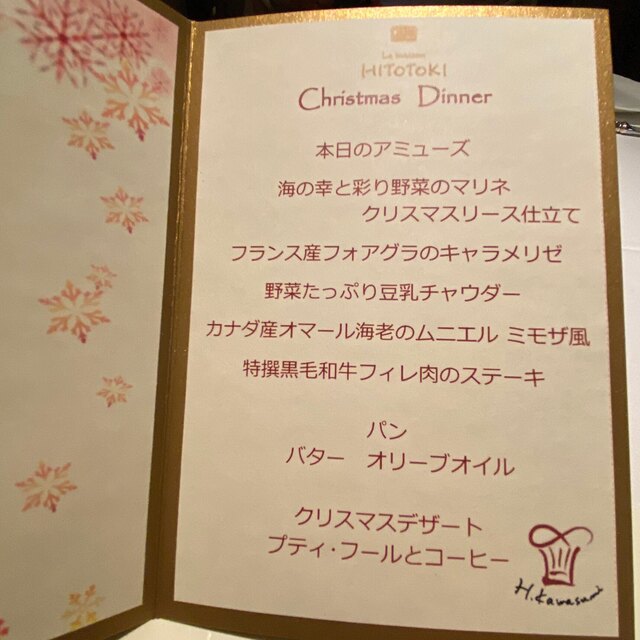 La maison
HITOTOKI
Christmas Dinner
本日のアミューズ
海の幸と彩り野菜のマリネ
クリスマスリース仕立て
フランス産フォアグラのキャラメリゼ
野菜たっぷり豆乳チャウダー
カナダ産オマール海老のムニエル ミモザ風
特撰黒毛和牛フィレ肉のステーキ
パン
バター オリーブオイル
クリスマスデザート
プティ・フールとコーヒー
H.Kawasumi